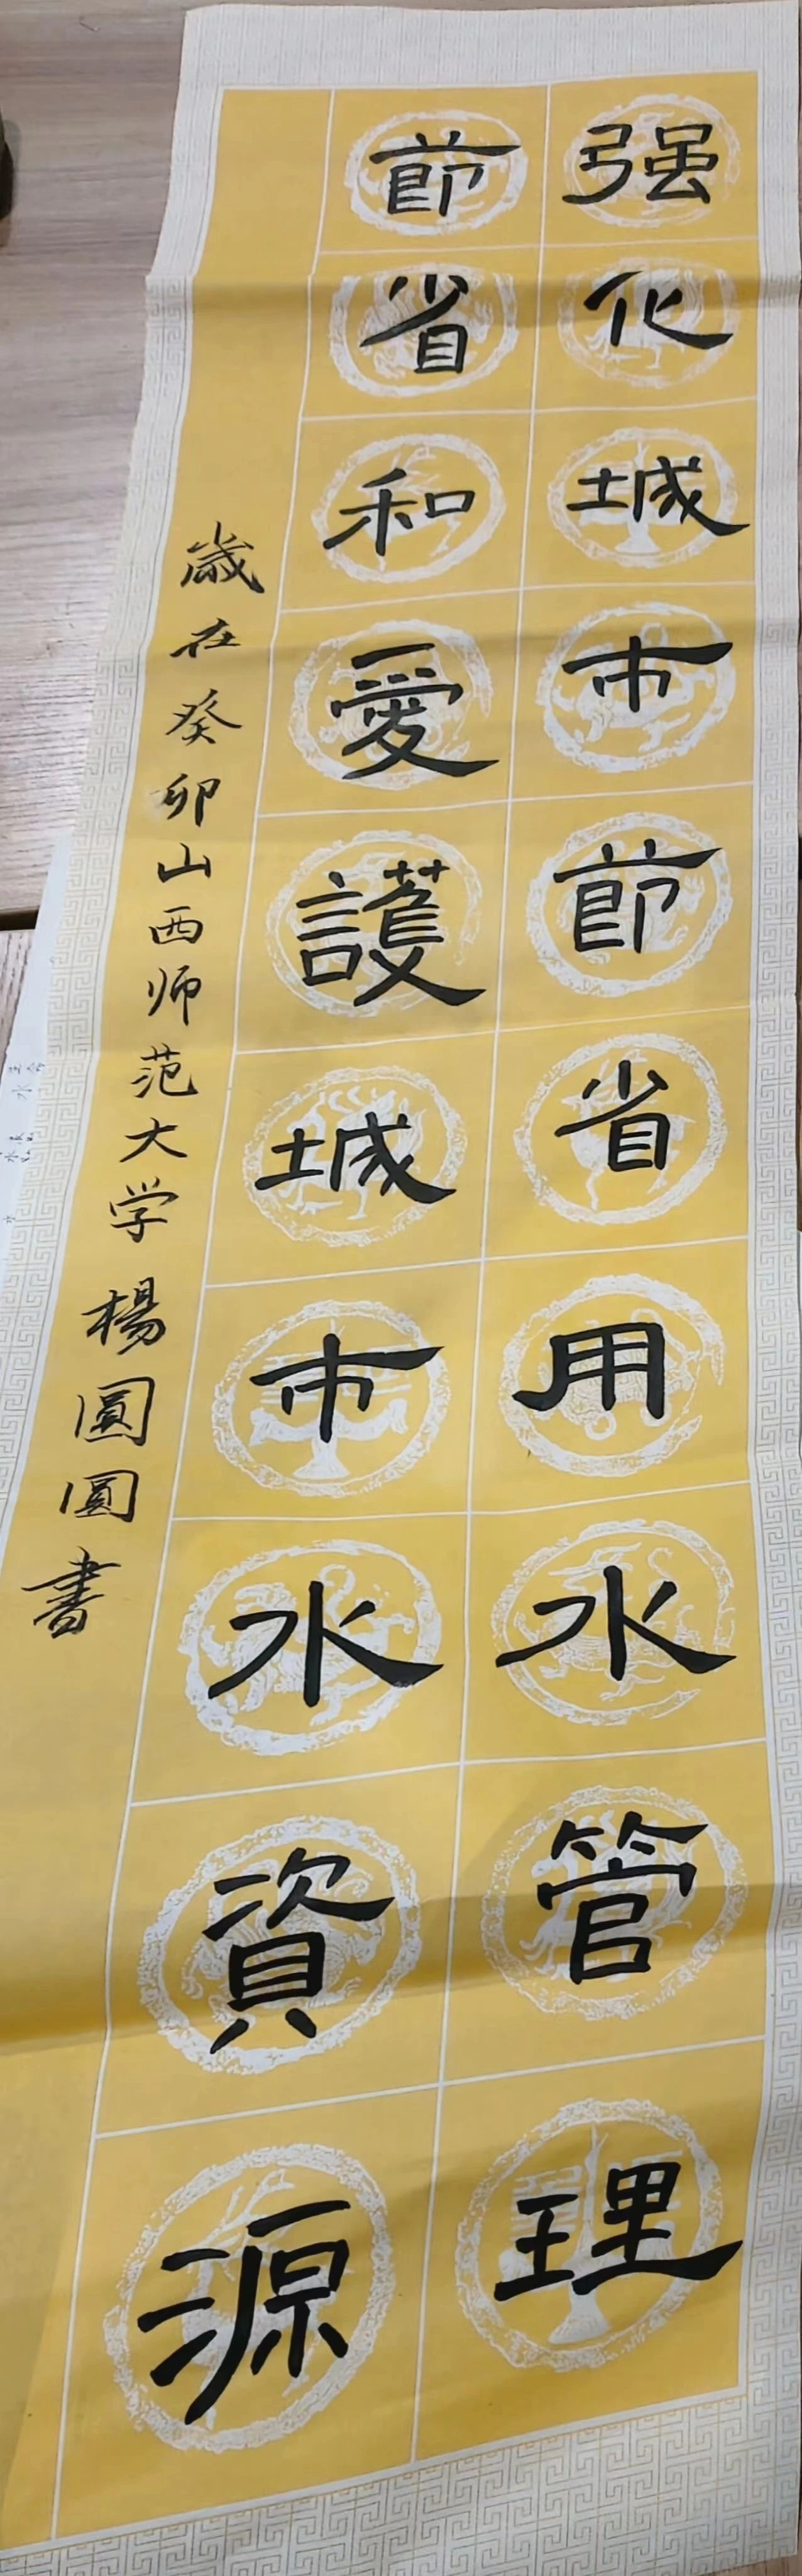 强化城市節省用水管理
節省和愛護城市水資源
歲在癸卯山西师范大学楊圓圓書